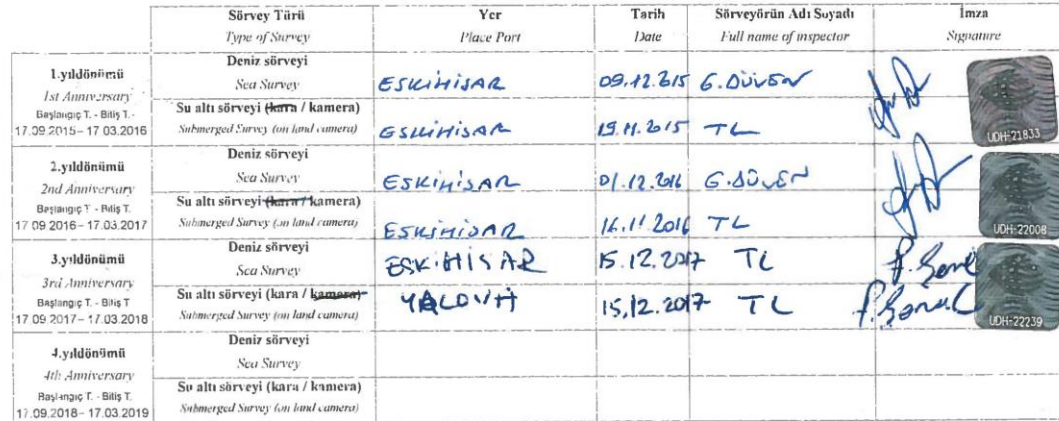 Sörvey Türü Yer Tarih Sörveyörün Adı Soyadı İmza
Type of Survey Place Port Date Full name of inspector Signature
1.yıldönümü
1st Anniversary
Başlangıç T. - Bitiş T.-
17.09.2015– 17.03.2016
Deniz sörveyi
Sea Survey
ESKİHİSAR 09.12.2015 G.DÜVEN
Su altı sörveyi (kara / kamera)
Submerged Survey (on land camera)
ESKİHİSAR 19.11.2015 TL
UDH-21833
2.yıldönümü
2nd Anniversary
Başlangıç T. - Bitiş T.
17.09.2016– 17.03.2017
Deniz sörveyi
Sea Survey
ESKİHİSAR 01.12.2016 G.DÜVEN
Su altı sörveyi (kara / kamera)
Submerged Survey (on land camera)
ESKİHİSAR 16.11.2016 TL
UDH-22008
3.yıldönümü
3rd Anniversary
Başlangıç T. - Bitiş T
17.09.2017– 17.03.2018
Deniz sörveyi
Sea Survey
ESKİHİSAR 15.12.2017 TL
Su altı sörveyi (kara / kamera)
Submerged Survey (on land camera)
YALOVA 15.12.2017 TL
UDH-22239
4.yıldönümü
4th Anniversary
Başlangıç T. - Bitiş T.
17.09.2018– 17.03.2019
Deniz sörveyi
Sea Survey
Su altı sörveyi (kara / kamera)
Submerged Survey (on land camera)